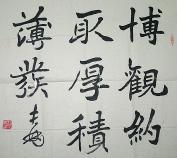 博観約
取厚積
薄發